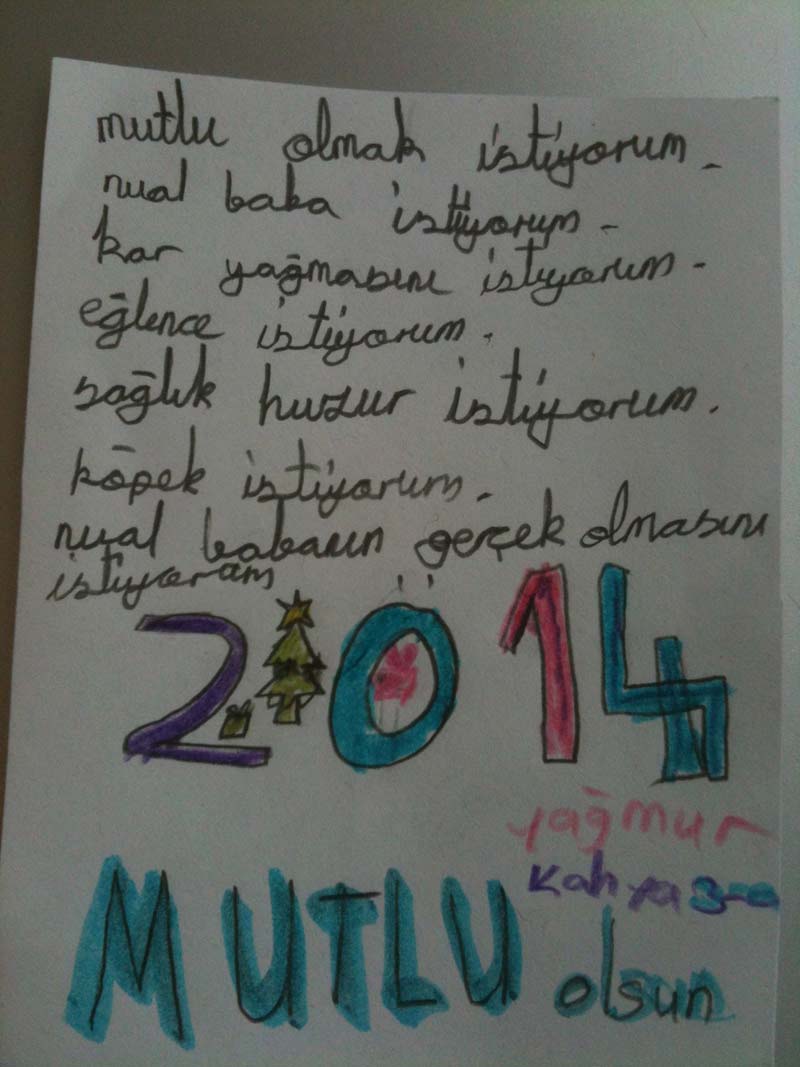 mutlu olmak istiyorum.
nual baba istiyorum.
kar yağmasını istiyorum.
eğlence istiyorum.
sağlık huzur istiyorum.
köpek istiyorum.
nual babanın gerçek olmasını
istiyoram
2014
yağmur
Kahya
MUTLU olsun